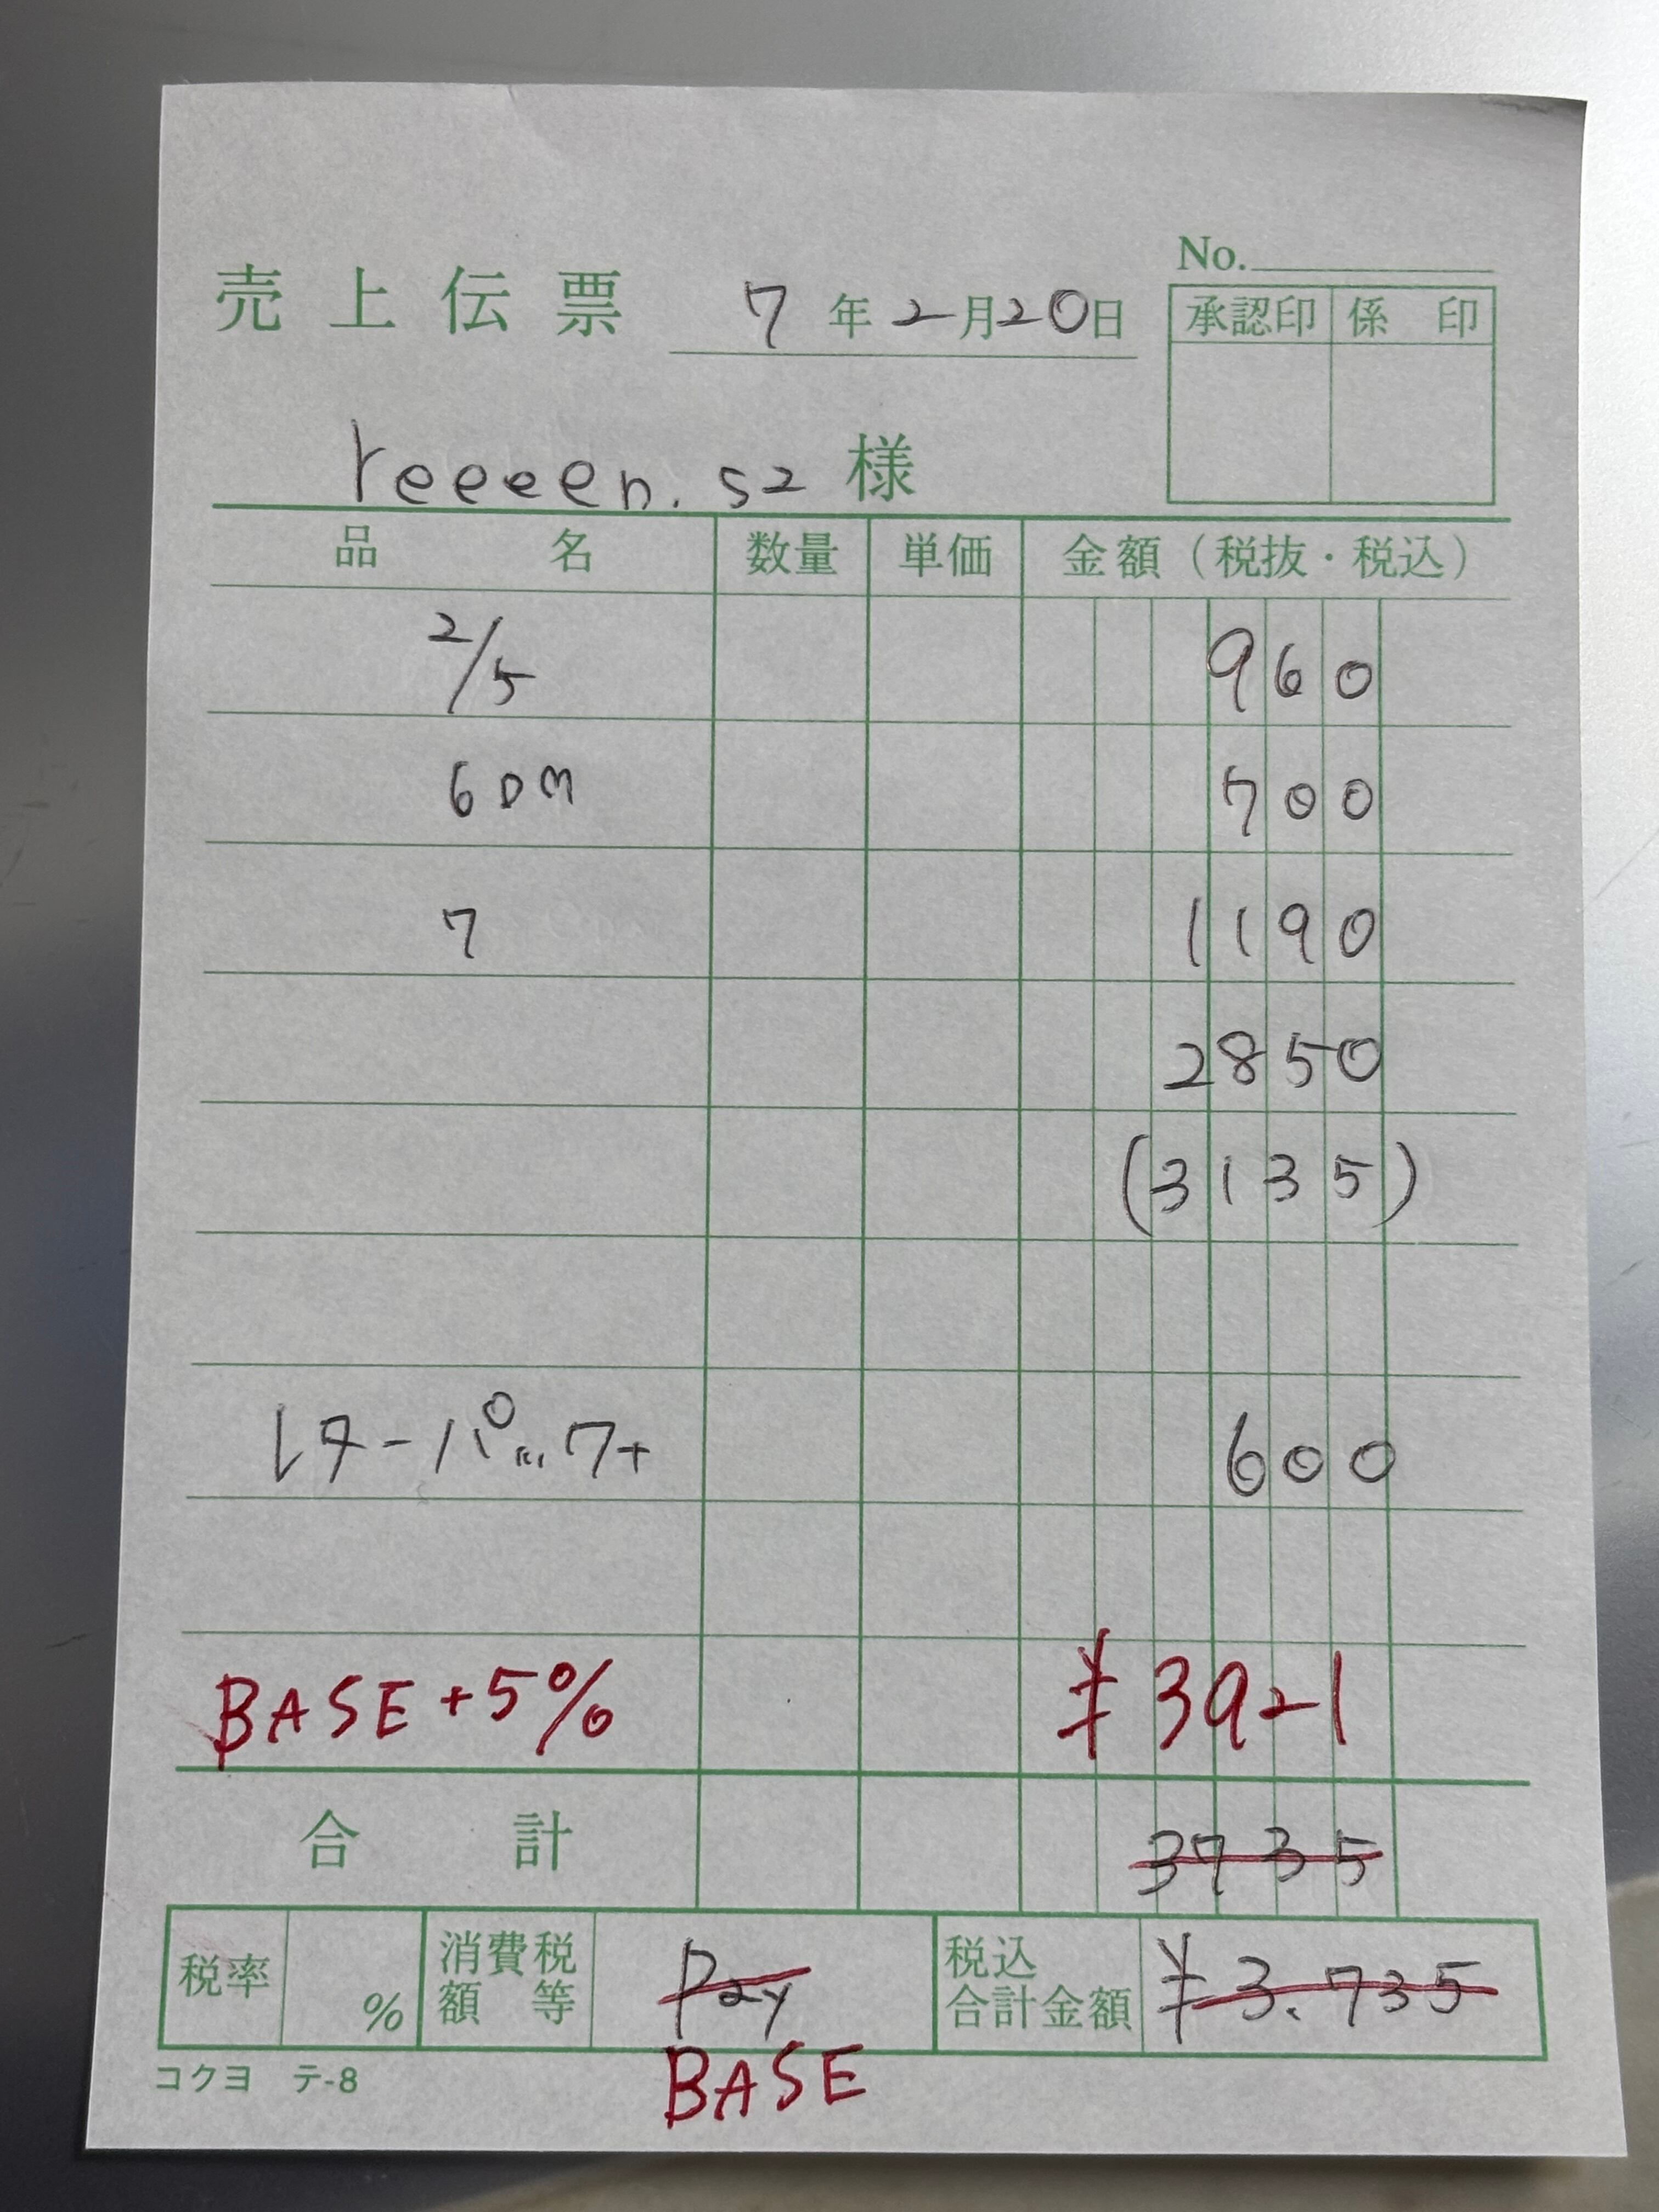 No.
売上伝票 7年2月20日
承認印 係印
reeeen.s2 様
品名 数量 単価 金額（税抜・税込）
2/5 960
6DM 700
7 1190
2850
(3135)
レターパック+ 600
BASE +5% ¥3921
合計 3735
税率 % 消費税額等 Pay 税込合計金額 ¥3.735
BASE
コクヨ テ-8